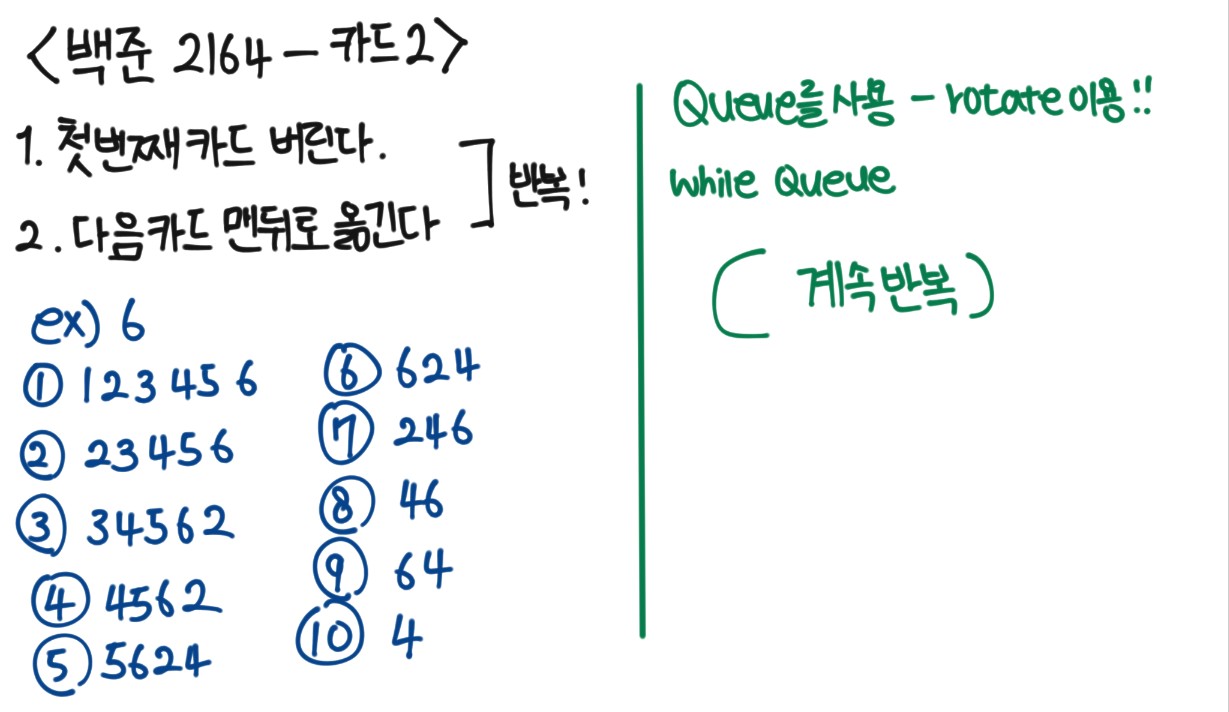 <백준 2164 - 카드2>
1. 첫번째 카드 버린다.
2. 다음 카드 맨뒤로 옮긴다
반복!
ex) 6
① 1 2 3 4 5 6
② 2 3 4 5 6
③ 3 4 5 6 2
④ 4 5 6 2
⑤ 5 6 2 4
⑥ 6 2 4
⑦ 2 4 6
⑧ 4 6
⑨ 6 4
⑩ 4
Queue를 사용 - rotate 이용!!
while Queue
( 계속 반복 )